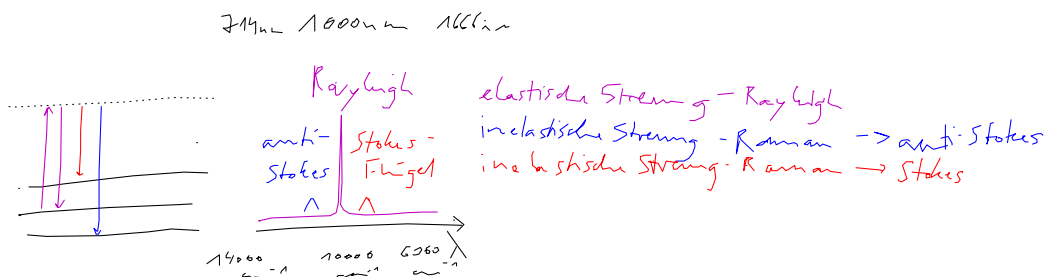 714nm 1000nm 1666nm
Rayleigh
anti-Stokes
Stokes-Flügel
elastische Streuung - Rayleigh
inelastische Streuung - Raman -> anti-Stokes
inelastische Streuung - Raman -> Stokes
λ
14000 cm⁻¹
10000 cm⁻¹
cm⁻¹